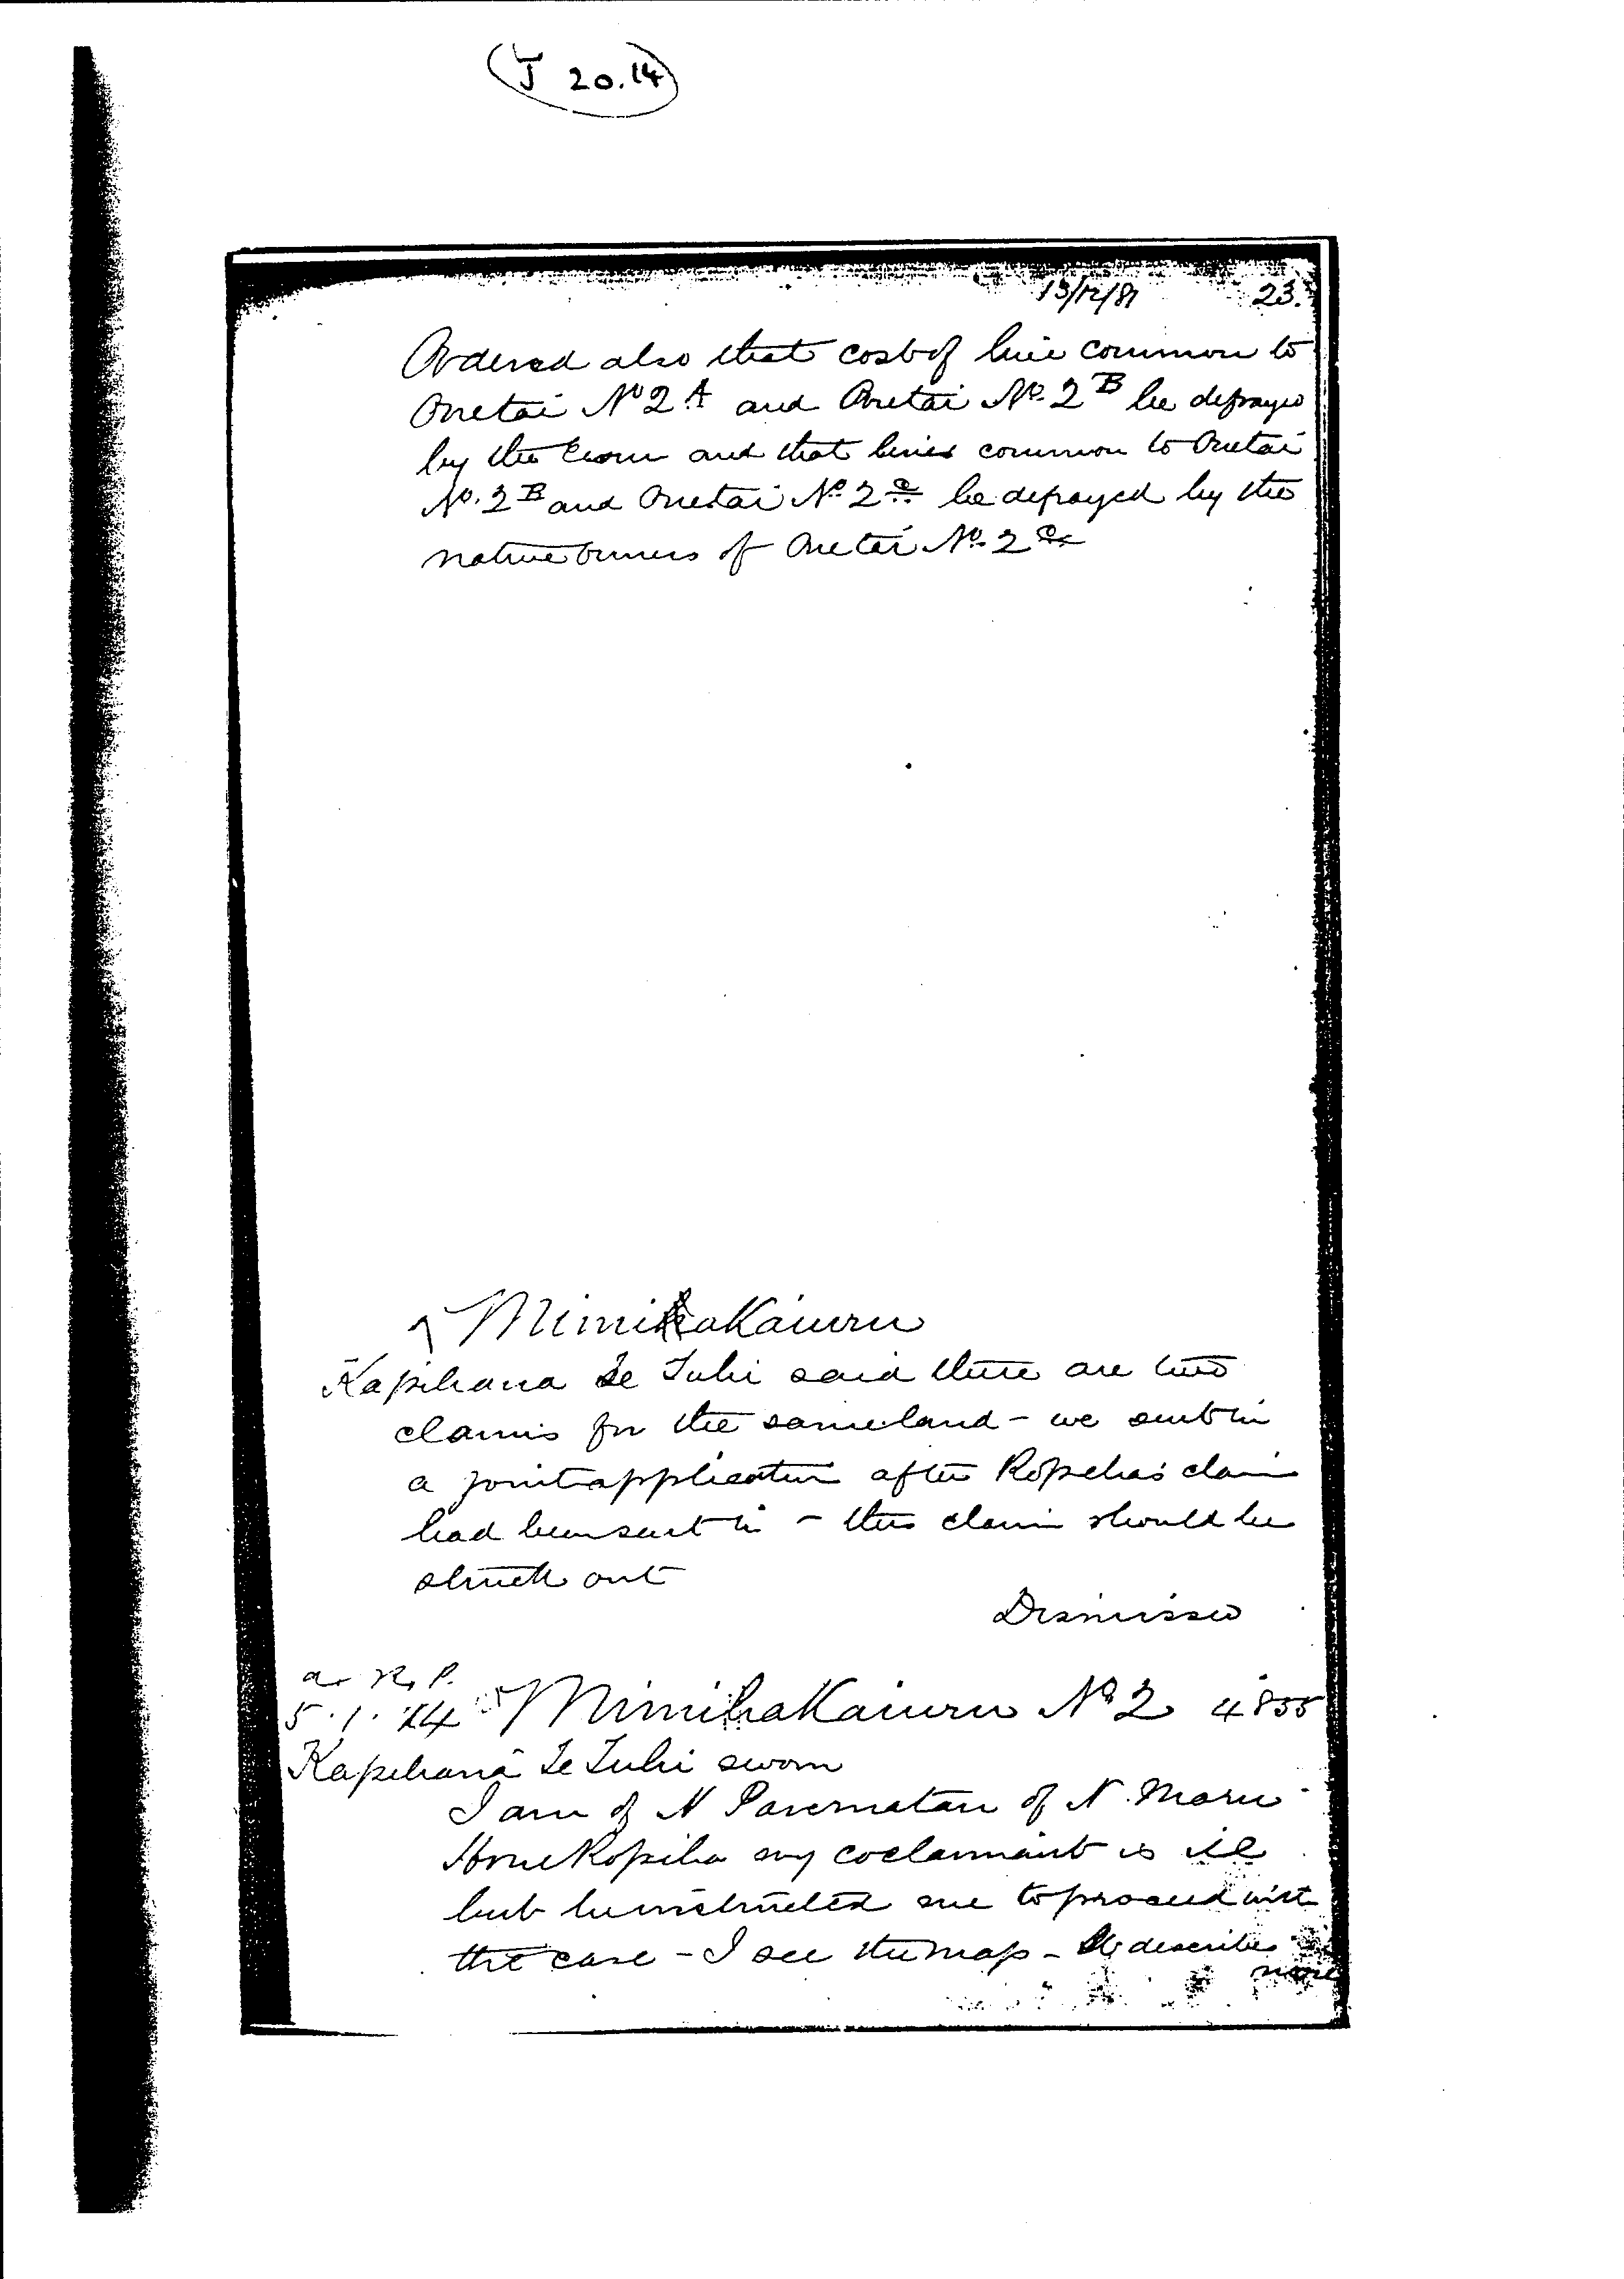 J 20.14
13/12/87 23.
Ordered also that cost of line common to
Onetai No 2 A and Onetai No. 2 B be defrayed
by the Crown and that lines common to Onetai
No. 2 B and Onetai No. 2 C be defrayed by the
native owners of Onetai No. 2 C
Mimihakaiuru
Kapihana Te Tuhi said there are two
claims for the same land - we sent in
a joint application after Ropiha's claim
had been sent in - this claim should be
struck out
Dismissed
5.1. Mimihakaiuru No 2 4855
Kapihana Te Tuhi sworn
I am of N of N. Maru
Hone Ropiha my coclaimant is ill
but he instructed me to proceed with
the case - I see the map - He describes